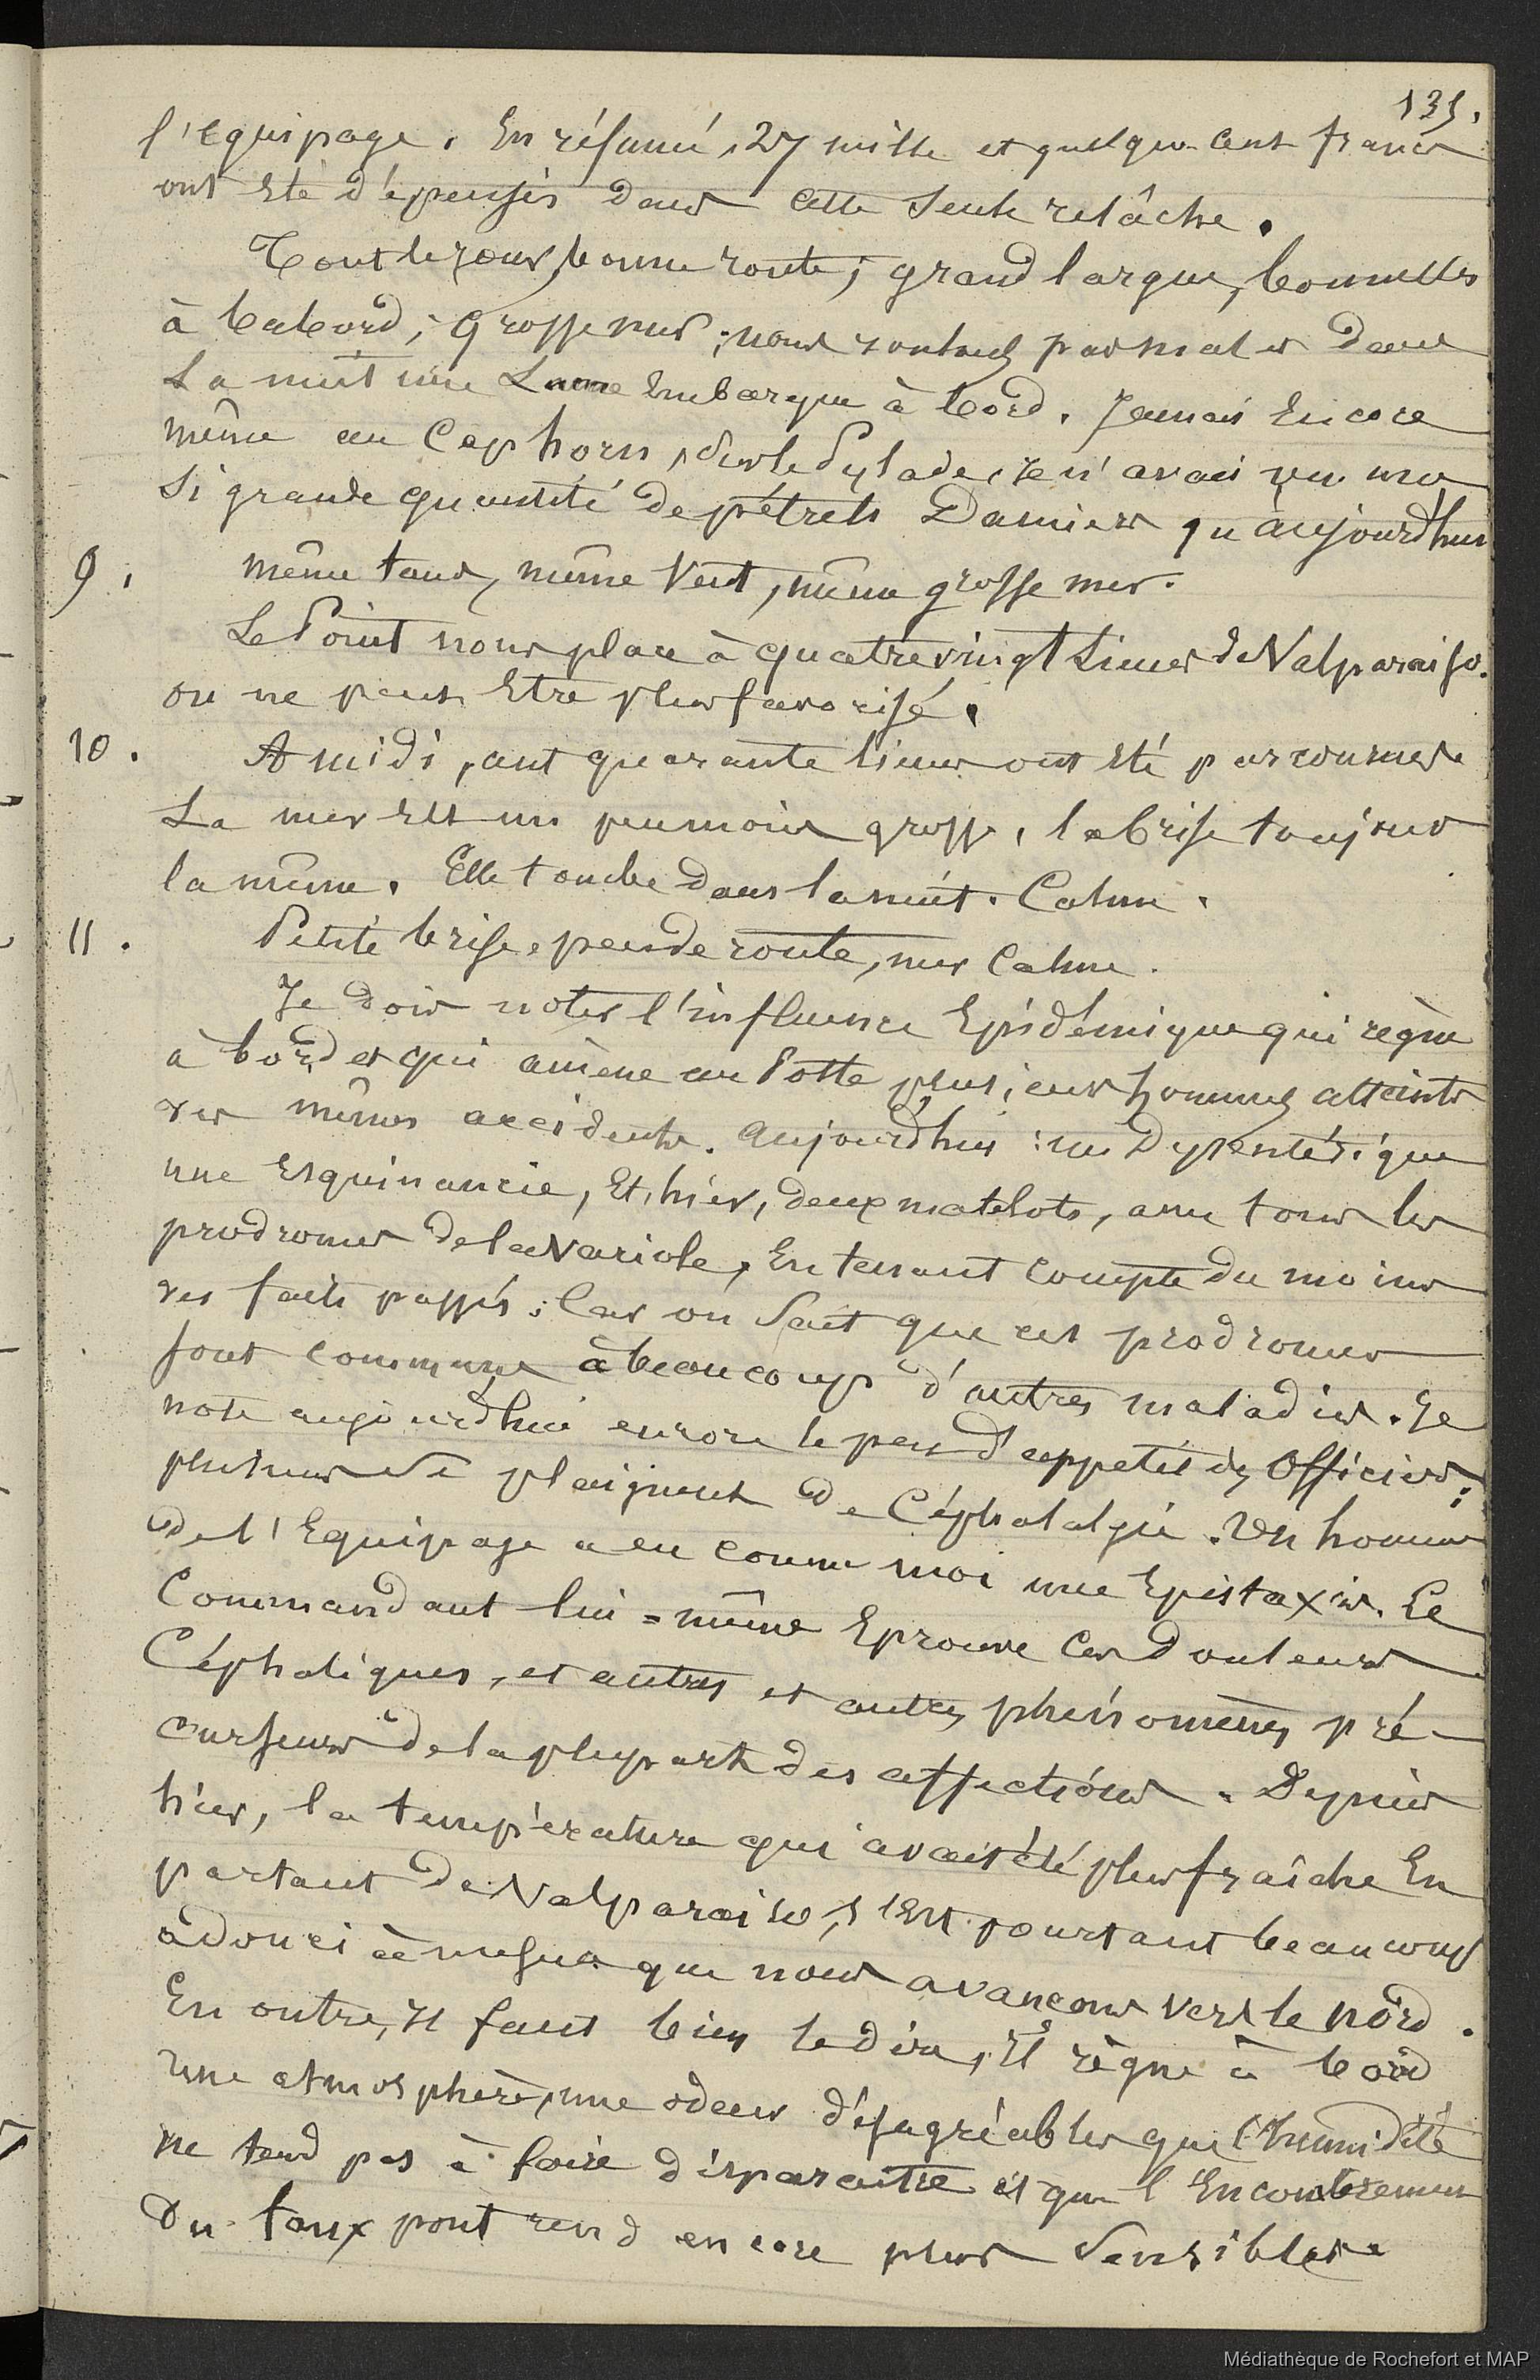 135.
l'equipage. En résumé, 27 mille et quelques cent francs
ont été dépensés dans cette seule relâche.
Tout le jour, bonne route; grand largue, bonnettes
à babord; grosse mer; nous roulons pas mal et dans
La nuit une Lame Embarque à bord. Jamais Encore
même au Cap horn, sur le Pylade, je n'avais vu une
si grande quantité de pétrels Damiers qu'aujourd'hui
9. même tems, même vent, même grosse mer.
Le Point nous place à quatrevingt Lieues de Valparaiso.
on ne peut Etre plus favorisé.
10. A midi, cent quarante lieues ont été parcourues.
La mer Est un peu moins grosse, la brise toujours
la même. Elle tombe dans la nuit. Calme.
11. Petite brise, peu de route, mer Calme.
Je dois noter l'influence Epidémique qui règne
à bord et qui amène au Poste plusieurs hommes atteints
des mêmes accidents. Aujourd'hui: un Dysentérique
une Esquinancie, Et, hier, deux matelots, avec tous les
prodromes de la Variole, En tenant compte du moins
des faits passés; Car on Sait que ces prodromes
sont communs à beaucoup d'autres maladies. Je
note aujourd'hui encore le peu d'appetit des Officiers;
plusieurs se plaignent de Céphalalgie. Un homme
de l'Equipage a eu comme moi une Epistaxis. Le
Commandant lui=même Eprouve Ces Douleurs
Céphaliques, et autres et autres phénomènes pré-
curseurs de la plupart des affections. Depuis
hier, la température qui avait été plus fraîche En
partant de Valparaiso, s'Est pourtant beaucoup
adouci à mesure que nous avançons vers le nord.
En outre, il faut bien le dire, il règne à bord
une atmosphère, une odeur désagréables que l'humidité
ne tend pas à faire disparaitre et que l'Encombrement
Du faux pont rend encore plus Sensibles.
Médiathèque de Rochefort et MAP